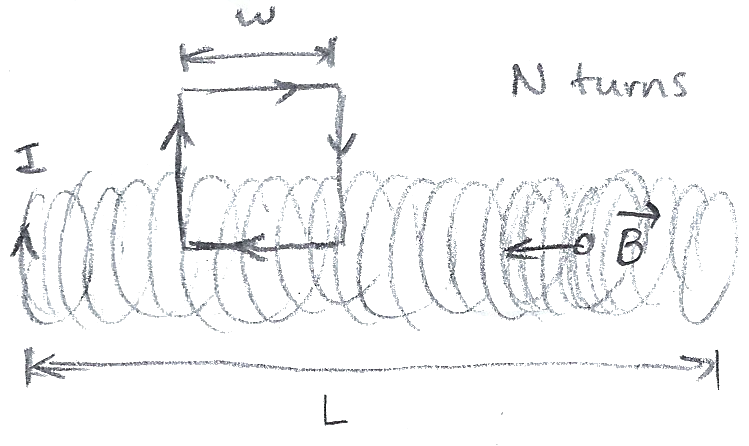 w
N turns
I
B
L